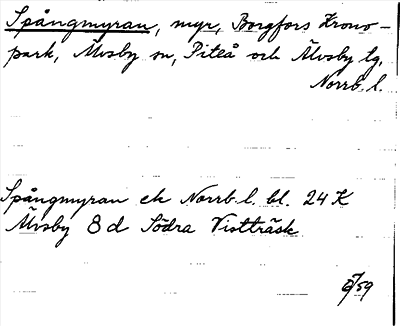 Spångmyran, myr, Borgfors Krono-
park, Älvsby sn, Piteå och Älvsby tg,
Norrb. l.
Spångmyran ek Norrb. l. bl. 24 K
Älvsby 8 d Södra Vistträsk
/59